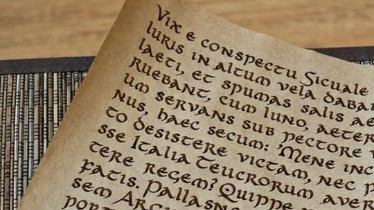 Vix e conspectu Siculae
luris in altum vela daban
laeti, et spumas salis ae
ruebant, cum Iuno, aeter
um servans sub pectore v
nus, haec secum: 'Mene inc
to desistere victam, nec p
sse Italia Teucrorum aver
tere regem? Quippe
fatis. Pallasn
sem Arg